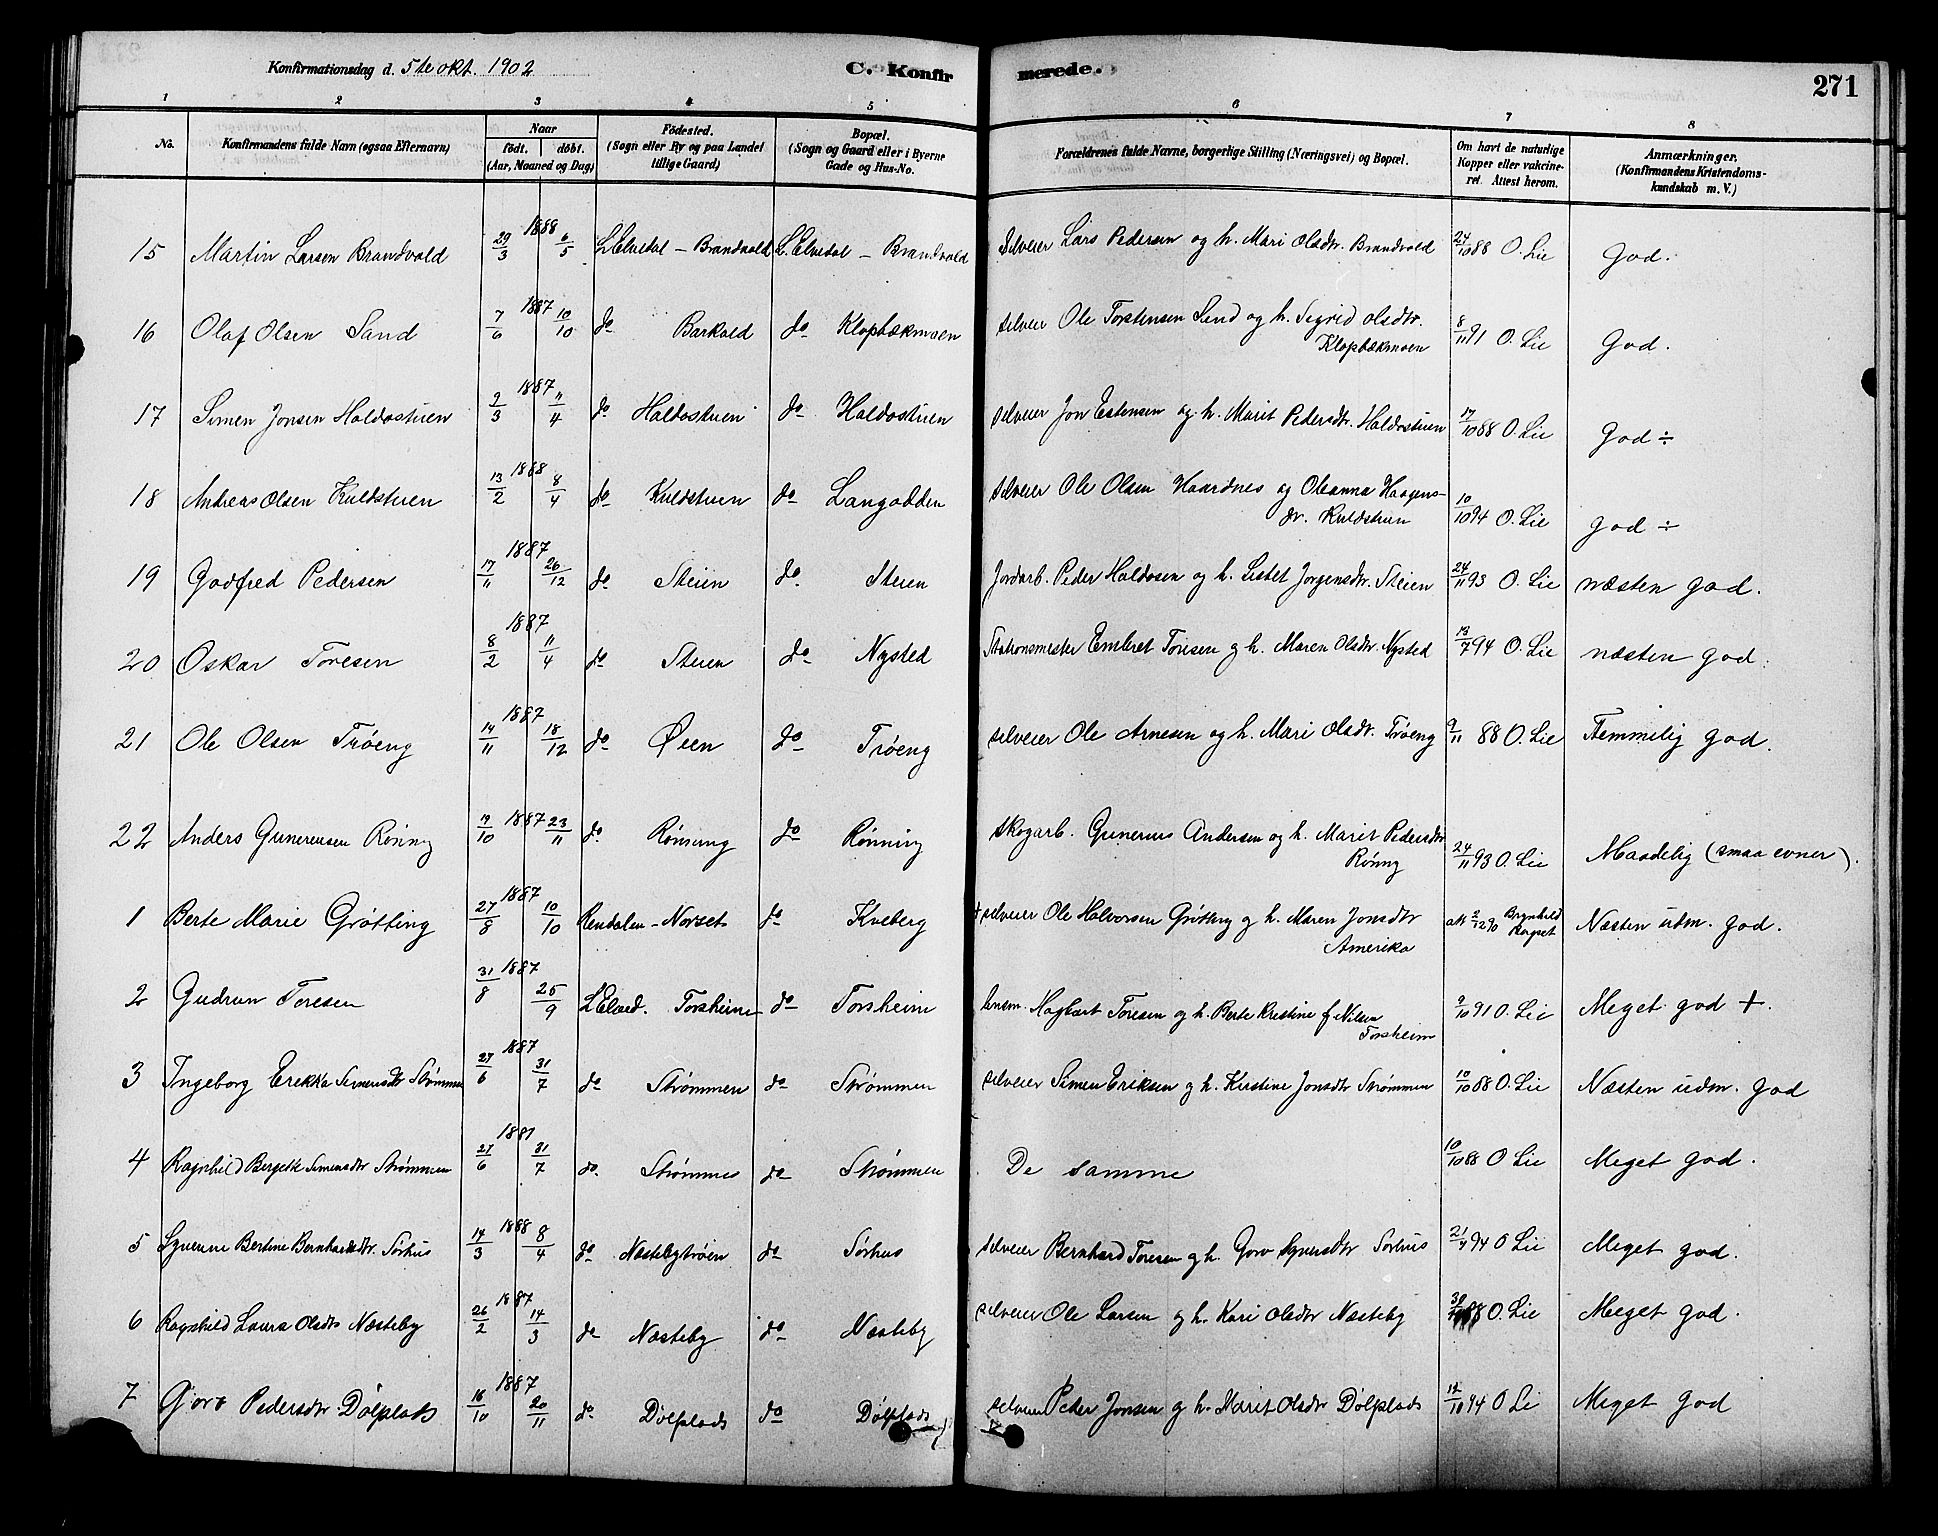 Konfirmationsdag d. 5te okt. 1902
C. Konfirmerede.
271
1 2 3 4 5 6 7 8
No.
Konfirmandens fulde Navn (ogsaa Efternavn)
Naar
født. døbt.
(Aar, Maaned og Dag)
Fødested.
(Sogn eller By og paa Landet
tillige Gaard)
Bopæl.
(Sogn og Gaard eller i Byerne
Gade og Hus-No.
Forældrenes fulde Navne, borgerlige Stilling (Næringsvei) og Bopæl.
Om havt de naturlige
Kopper eller vakcine-
ret. Attest herom.
Anmærkninger.
(Konfirmandens Kristendoms-
kundskab m. V.)
15 Martin Larsen Brandvold 29/3 1888 6/5 L. Elvedal – Brandvold L. Elvedal – Brandvold selveier Lars Pedersen og h. Mari Olsdtr. Brandvold 24/10 88 O. Lie God.
16 Olaf Olsen Sand 7/6 1887 10/10 do Barkald do Klopbækmoen selveier Ole Torstensen Sand og h. Sigrid Olsdtr.
Klopbækmoen 8/11 91 O. Lie God.
17 Simen Jonsen Haldostuen 2/3 1887 11/4 do Haldostuen do Haldostuen selveier Jon Estensen og h. Marit Pedersdtr. Haldostuen 17/10 88 O. Lie God ÷
18 Andreas Olsen Kuldstuen 13/2 1888 8/4 do Kuldstuen do Langodden selveier Ole Olsen Haardnes og Oleanna Haagens-
dr. Kuldstuen 10/10 94 O. Lie god ÷
19 Godfred Pedersen 17/11 1887 26/12 do Steien do. Steien Jordarb. Peder Haldosen og h. Lisbet Jørgensdtr. Steien 24/11 93 O. Lie næsten god.
20 Oskar Toresen 8/2 1887 11/4 do Steien do Nysted Stationsmester Embret Toresen og h. Maren Olsdtr Nysted 13/7 94 O. Lie næsten god.
21 Ole Olsen Trøeng 14/11 1887 18/12 do Øien do Trøeng selveier Ole Arnesen og h. Mari Olsdr. Trøeng 9/11 88 O. Lie Temmelig god.
22 Anders Gunerusen Rønng 19/10 1887 23/11 do Rønning do Rønning skogarb. Gunerius Andersen og h. Marit Pedersdtr
Rønng 24/11 93 O. Lie Maadelig (smaa evner).
1 Berte Marie Grøtting 27/8 1887 10/10 Rendalen – Norset do Kveberg + selveier Ole Halvorsen Grøtting og h. Maren Jonsdtr
Amerika att 2/12 90 Brynhild Næsten udm. god.
2 Gudrun Toresen 31/8 1887 25/9 L. Elved. Torsheim do Torsheim lensm. Hagbart Toresen og h. Berte Kristine f. Nilsen
Torsheim 9/10 91 O. Lie Meget god +.
3 Ingeborg Erekka Simensdtr Strømmen 27/6 1887 31/7 do Strømmen do Strømmen selveier Simen Eriksen og h. Kirstine Jonsdtr Strømmen 10/10 88 O. Lie Næsten udm. god
4 Ragnhild Bergette Simensdtr Strømmen 27/6 1887 31/7 do. Strømmes do Strømmen De samme 10/10 88 O Lie Meget god.
5 Syverine Bertine Bernhardsdtr. Sørhus 14/3 1888 8/4 do Næstebytrøen do Sørhus selveier Bernhard Toresen og h. Goro Syversdtr Sørhus 21/4 94 O. Lie Meget god.
6 Ragnhild Laura Olsdtr Næsteby 26/2 1887 14/3 do Næsteby do Næsteby selveier Ole Larsen og h. Kari Olsdtr Næsteby 88 O. Lie Meget god.
7 Goro Pedersdtr Dølplads 16/10 1887 20/11 do Dølplads do Dølplads selveier Peder Jonsen og h. Marit Olsdtr Dølplads 12/10 94 O Lie Meget god